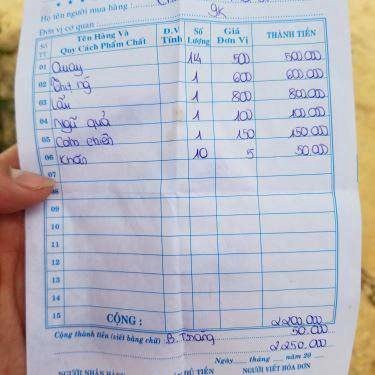 Họ tên người mua hàng :
9k
Đơn vị cơ quan :
Số TT Tên Hàng Và Quy Cách Phẩm Chất Đ.V Tính Số Lượng Giá Đơn Vị THÀNH TIỀN
01 Quay 14 500 500.000
02 1 600 600.000
03 Lẩu 1 800 800.000
04 Ngũ quả 1 100 100.000
05 Cơm chiên 1 150 150.000
06 Khăn 10 5 50.000
07
08
09
10
11
12
13
14
15
CỘNG : 2200.000
50.000
Cộng thành tiền (viết bằng chữ) B. Tháng
2250.000
Ngày tháng năm 20
NGƯỜI NHẬN HÀNG ĐỦ TIỀN NGƯỜI VIẾT HÓA ĐƠN